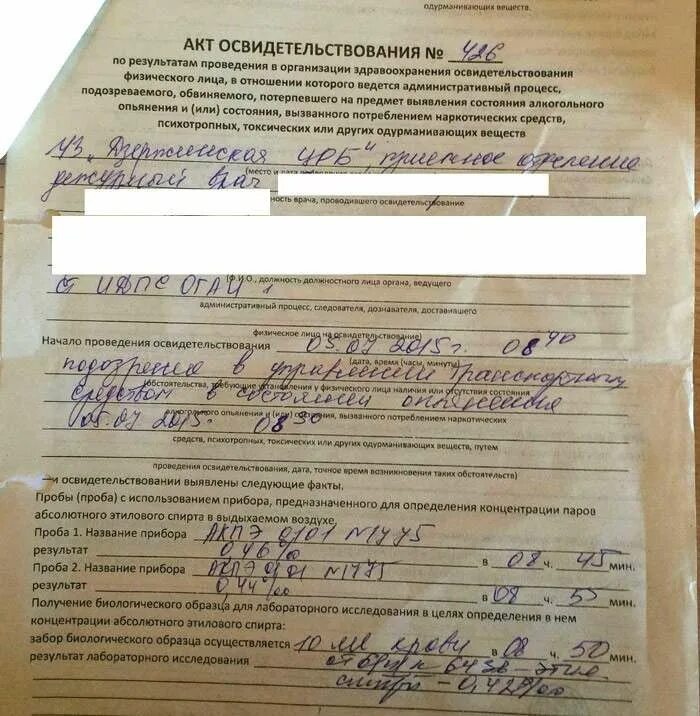 одурманивающих веществ.
АКТ ОСВИДЕТЕЛЬСТВОВАНИЯ № 426
по результатам проведения в организации здравоохранения освидетельствования
физического лица, в отношении которого ведется административный процесс,
подозреваемого, обвиняемого, потерпевшего на предмет выявления состояния алкогольного
опьянения и (или) состояния, вызванного потреблением наркотических средств,
психотропных, токсических или других одурманивающих веществ
УЗ "Дзержинская ЦРБ", приемное отделение
(место и дата
дежурный врач
ность врача, проводившего освидетельствование
(Ф.И.О., должность должностного лица органа, ведущего
ст ИДПС ОГАИ
административный процесс, следователя, дознавателя, доставившего
физическое лицо на освидетельствование)
Начало проведения освидетельствования 05.07.2015г. 08 40
(дата, время (часы, минуты)
подозрение в управлении транспортным
(обстоятельства, требующие установления у физического лица наличия или отсутствия состояния
средством в состоянии опьянения
алкогольного опьянения и (или) состояния, вызванного потреблением наркотических
05.07.2015г. 08 30
средств, психотропных, токсических или других одурманивающих веществ, путем
проведения освидетельствования, дата, точное время возникновения таких обстоятельств)
и освидетельствовании выявлены следующие факты.
Пробы (проба) с использованием прибора, предназначенного для определения концентрации паров
абсолютного этилового спирта в выдыхаемом воздухе.
Проба 1. Название прибора АКПЭ 0101 №1775
результат 0,46‰ в 08 ч. 45 мин.
Проба 2. Название прибора АКПЭ 0101 №1775
результат 0,44‰ в 08 ч. 55 мин.
Получение биологического образца для лабораторного исследования в целях определения в нем
концентрации абсолютного этилового спирта:
забор биологического образца осуществляется 10 мл крови в 08 ч. 50 мин.
результат лабораторного исследования
0,42‰